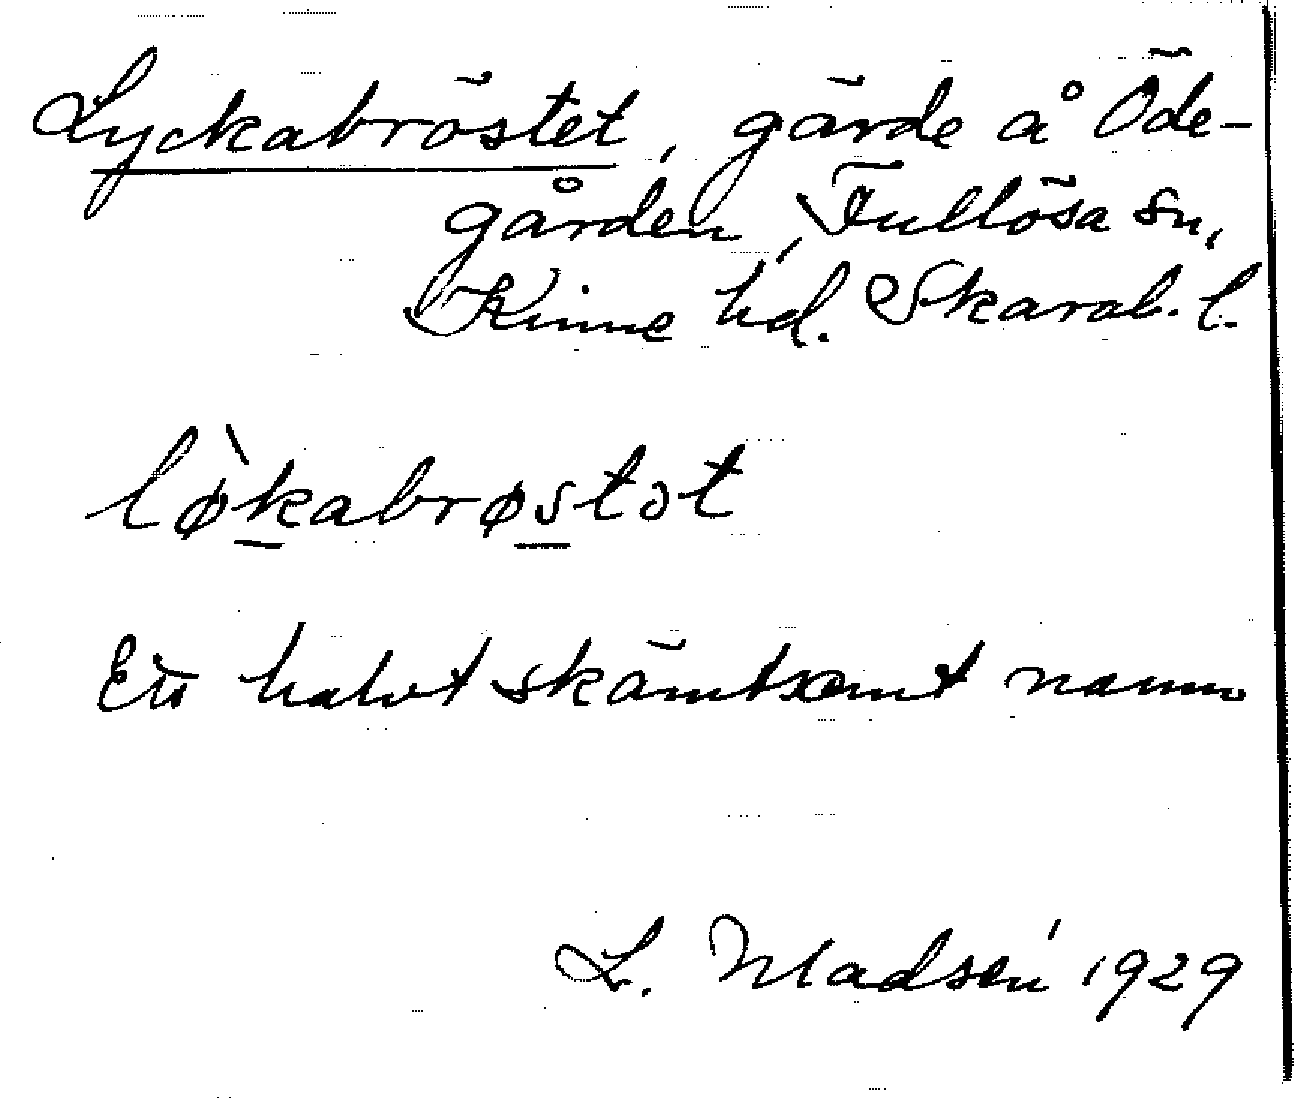 Lyckabröstet, gärde å Öde-
gården, Fullösa sn,
Kinne hd. Skarab. l.
lø̀kabrøstət
Ett halvt skämtsamt namn
L. Madsén 1929